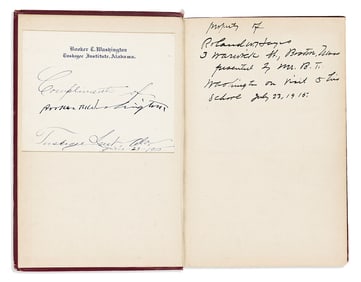 Booker T. Washington
Tuskegee Institute, Alabama.
Compliments of
Booker T. Washington
Tuskegee Inst. Ala
property of
Roland W. Hayes
3 Warwick St, Boston, Mass
presented by Mr. B. T.
Washington on visit to his
school July 23, 1915.